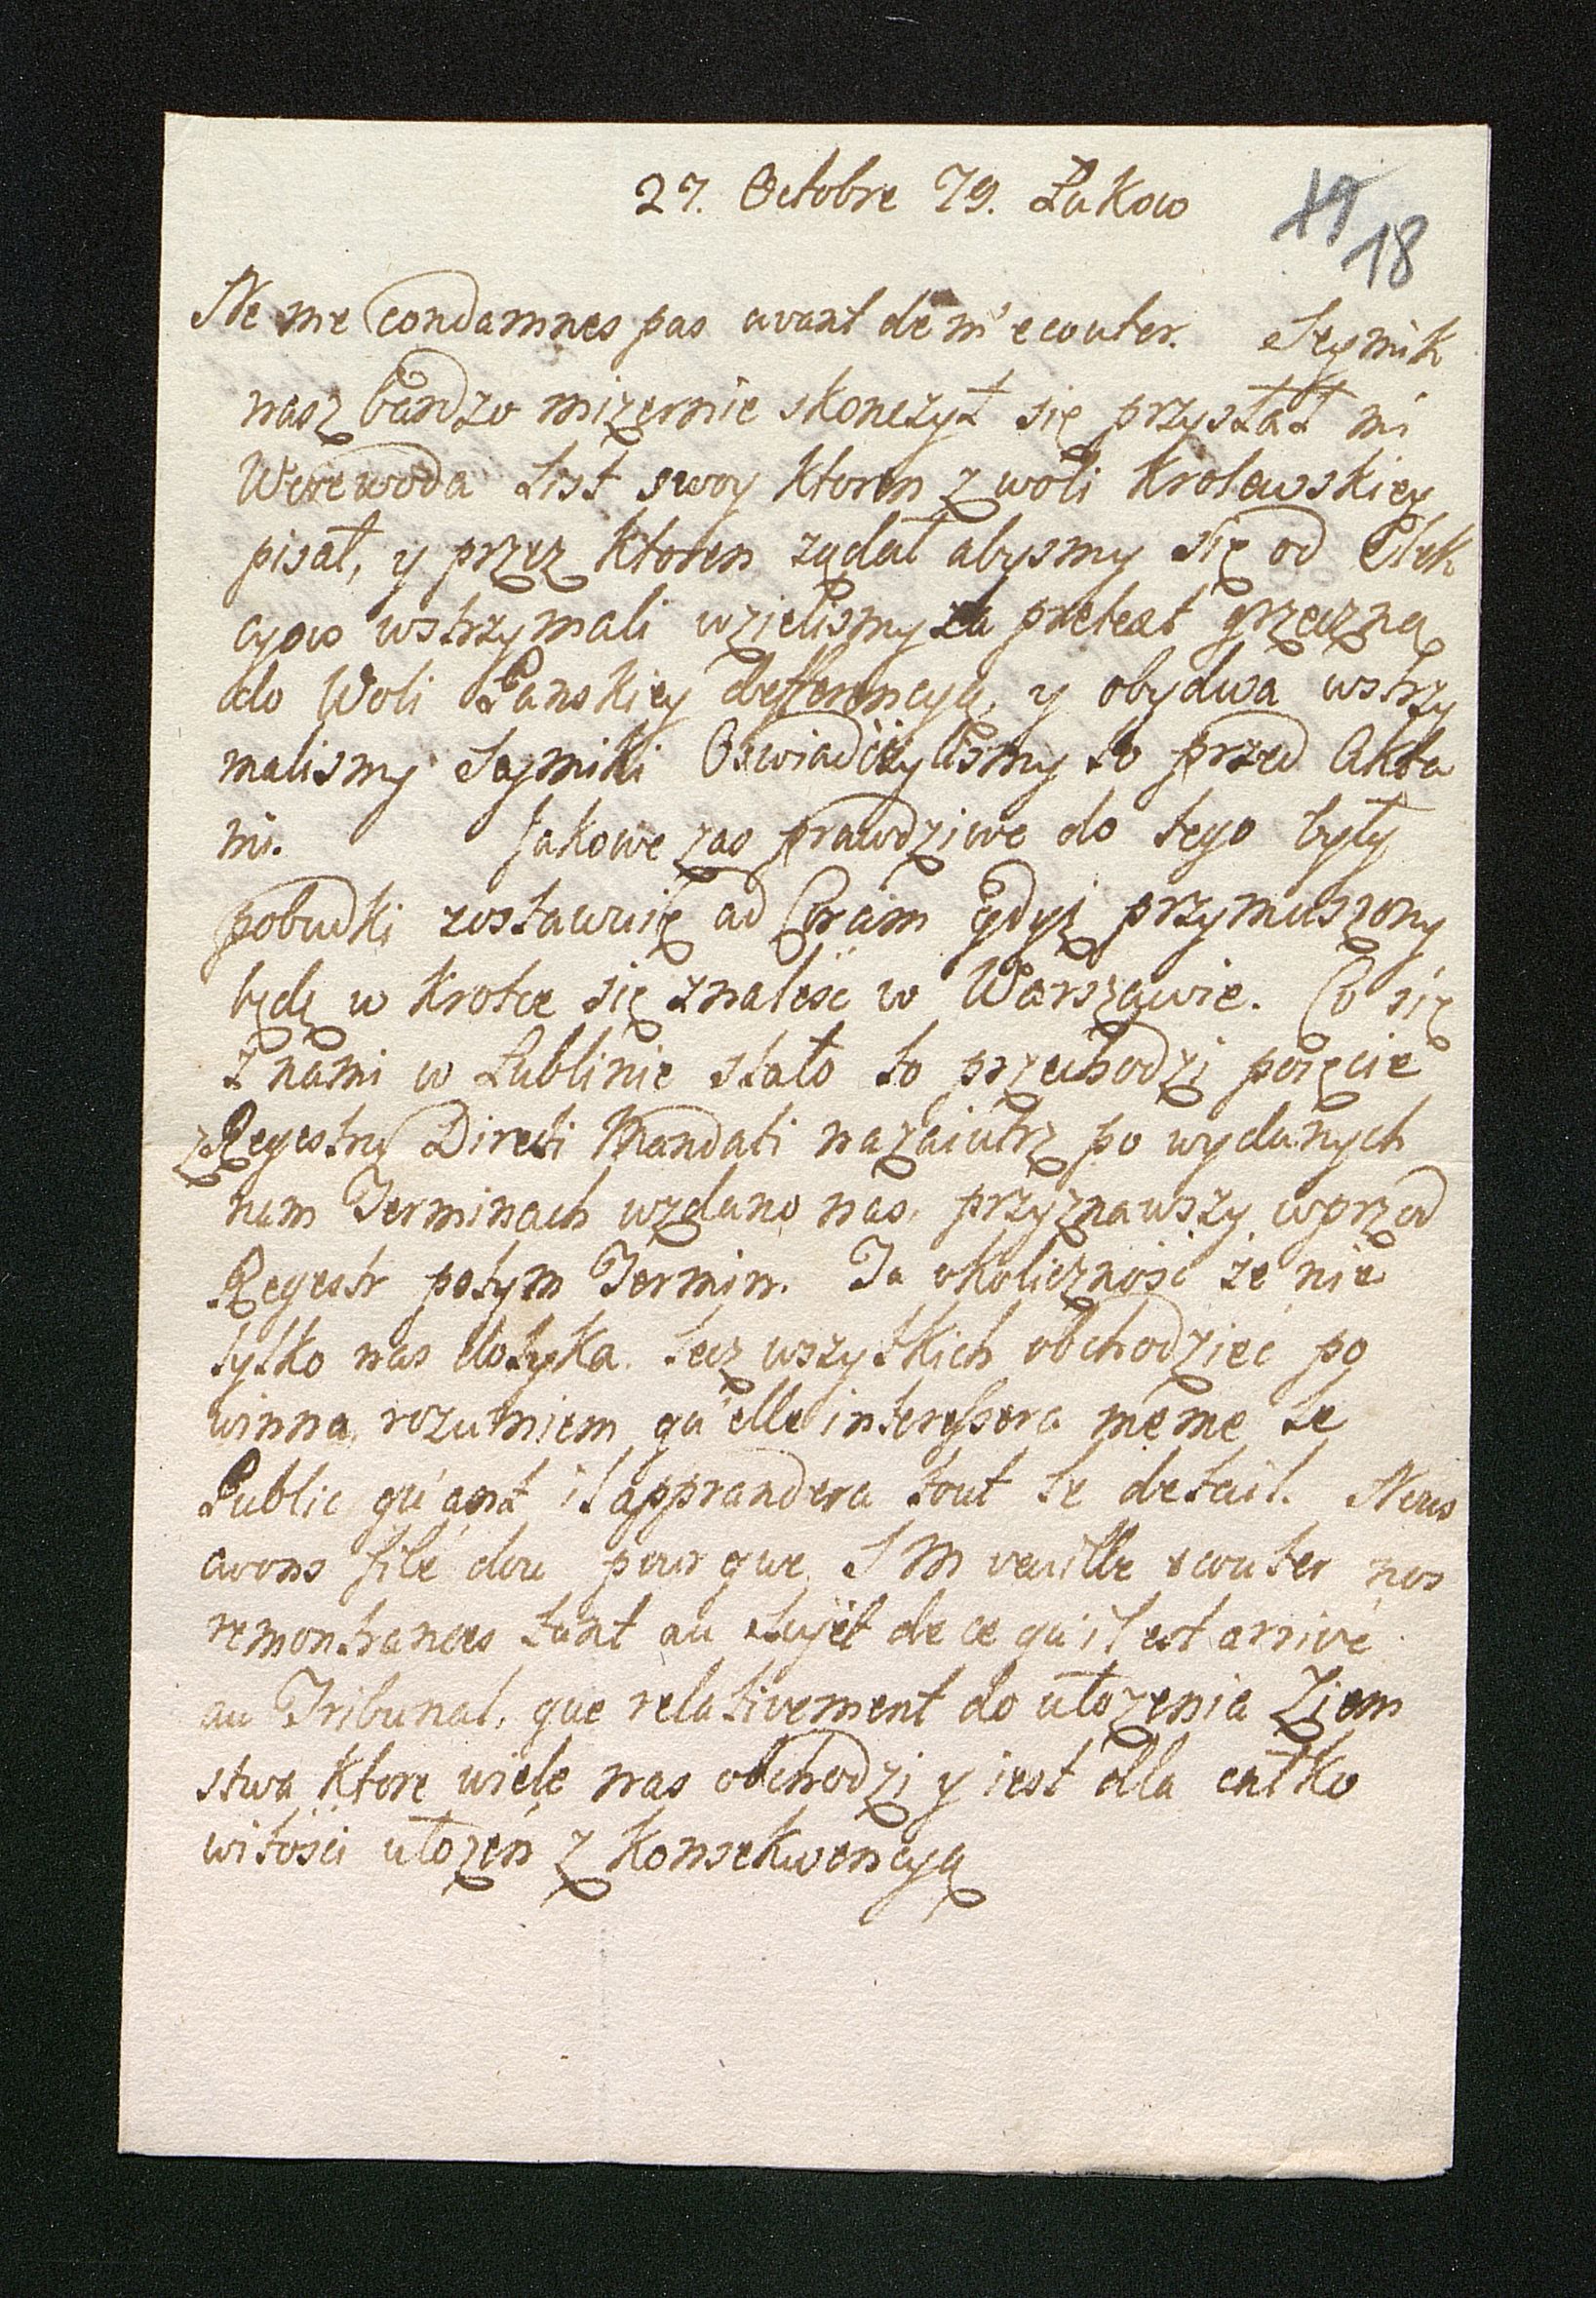 27. Octobre 79. Łukow
18
Ne me condamnes pas avant de m'ecouter. Seymik
nasz bardzo mizernie skonczył się przysłał mi
list swoy ktoren z woli Krolewskiey
pisał, y przez ktoren ządał abysmy się od Elek
cyow wstrzymali wzielismy za pretext grzeczną
do Woli Panskiey defferencyą, y obydwa wstrzy
malismy Seymiki Oswiadczylismy to przed Akta
mi. Jakowe zas prawdziwe do tego były
pobudki zostawuię ad Coram gdyż przymuszony
będę w krotce się znaleść w Warszawie. Co się
z nami w Lublinie stało to przechodzi poięcie
z Regestru Directi Mandati nazaiutrz po wydanych
nam Terminach wzdano nas, przyznawszy wprzod
Regestr potym Termin. Ta okoliczność że nie
tylko nas dotyka lecz wszytkich obchodzieć po
winna, rozumiem qu'elle interessera meme le
Public qu'ant il apprandera tout le detail. Nous
avons filé dou pour que S M veuille ecouter nos
remontrances tant au sujet de ce qu'il est arrivé
au Tribunal, que relativement do ułozenia Ziem
stwa ktore wiele nas obchodzi y iest dla całko
witości ułozeń z konsekwencyą